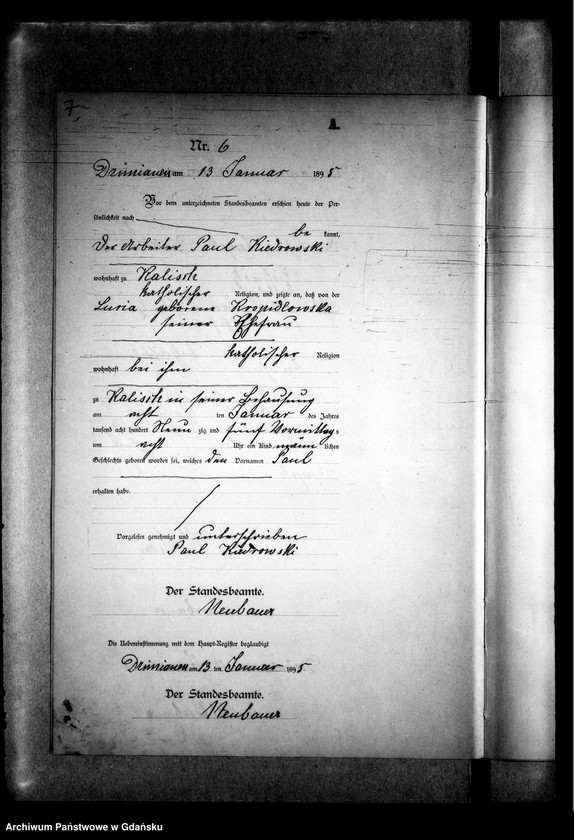 7,
A.
Nr. 6
Dzimianen am 13 Januar 1895
Vor dem unterzeichneten Standesbeamten erschien heute der Per-
sönlichkeit nach
be kannt,
der Arbeiter Paul Kiedrowski
wohnhaft zu Kalisch
katholischer Religion, und zeigte an, daß von der
Lucia geborene Kropidlowska
seiner Ehefrau
katholischer Religion
wohnhaft bei ihm
zu Kalisch in seiner Behausung
am acht ten Januar des Jahres
tausend acht hundert Neun zig und fünf Vormittag s
um acht Uhr ein Kind männ lichen
Geschlechts geboren worden sei, welches den Vornamen Paul
erhalten habe.
Vorgelesen genehmigt und unterschrieben
Paul Kiedrowski
Der Standesbeamte.
Neubauer
Die Uebereinstimmung mit dem Haupt-Register beglaubigt
Dzimianen am 13 ten Januar 1895.
Der Standesbeamte.
Neubauer
Archiwum Państwowe w Gdańsku